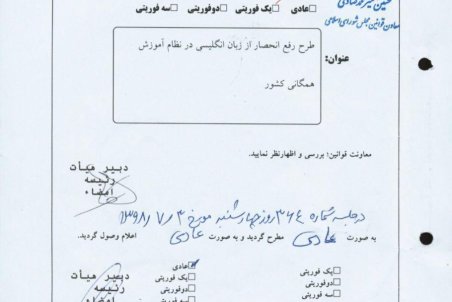 معاون قوانین مجلس شورای اسلامی
عادی □ یک فوریتی □ دوفوریتی □ سه فوریتی □
عنوان:
طرح رفع انحصار از زبان انگلیسی در نظام آموزش
همگانی کشور
معاونت قوانین؛ بررسی و اظهارنظر نمایید.
دبیر هیأت
رئیسه
امضاء
در جلسه شماره ۳۶۴ روز چهارشنبه مورخ ۱۳۹۸/۷/۳
به صورت عادی مطرح گردید و به صورت عادی اعلام وصول گردید.
□ یک فوریتی
□ دوفوریتی
□ سه فوریتی
☑ عادی
□ یک فوریتی
□ دوفوریتی
□ سه فوریتی
دبیر هیأت
رئیسه
امضاء